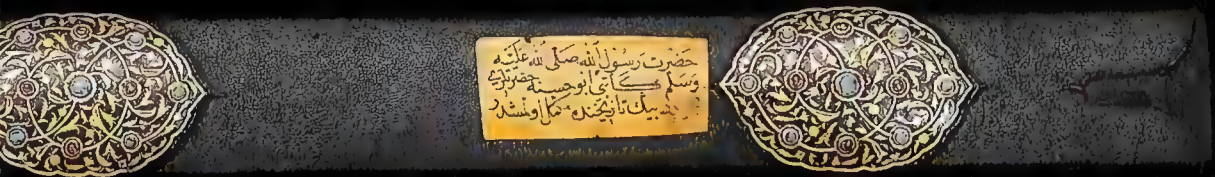 حضرت رسول الله صلى الله عليه
وسلم كاتبى ابو حسنه حضرتلرى
بيك تاريخنده مكمل اولمشدر